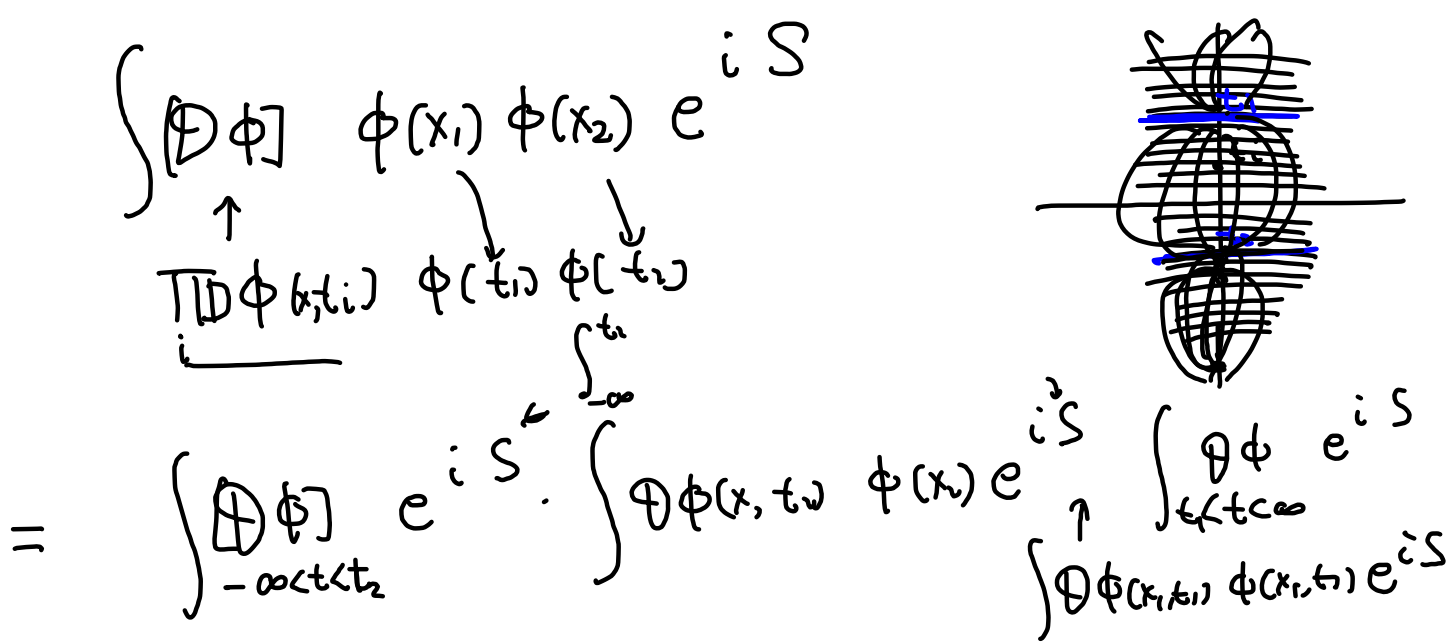 ∫ [Dϕ] ϕ(x₁) ϕ(x₂) e^{iS}
t₁
↑
∏_i Dϕ(x,t_i) ϕ(t₁) ϕ(t₂)
∫_{-∞}^{t₂}
= ∫_{-∞<t<t₂} [Dϕ] e^{iS} · ∫ Dϕ(x, t₂) ϕ(x₂) e^{iS} ∫_{t₁<t<∞} Dϕ e^{iS}
↑
∫ Dϕ(x₁,t₁) ϕ(x₁,t₁) e^{iS}